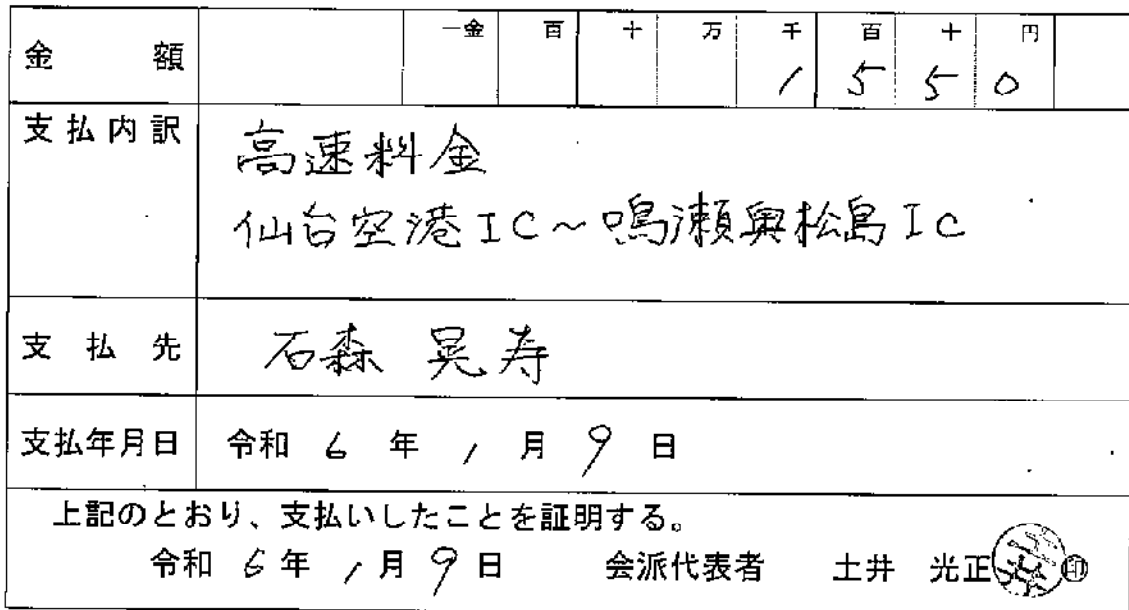 金額 一金 百 十 万 千 百 十 円
1 5 5 0
支払内訳 高速料金
仙台空港IC～鳴瀬奥松島IC
支払先 石森 晃寿
支払年月日 令和 6 年 1 月 9 日
上記のとおり、支払いしたことを証明する。
令和 6 年 1 月 9 日 会派代表者 土井 光正 印